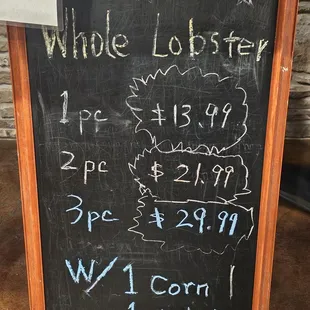 Whole Lobster
1 pc $13.99
2 pc $21.99
3 pc $29.99
W/ 1 Corn
1